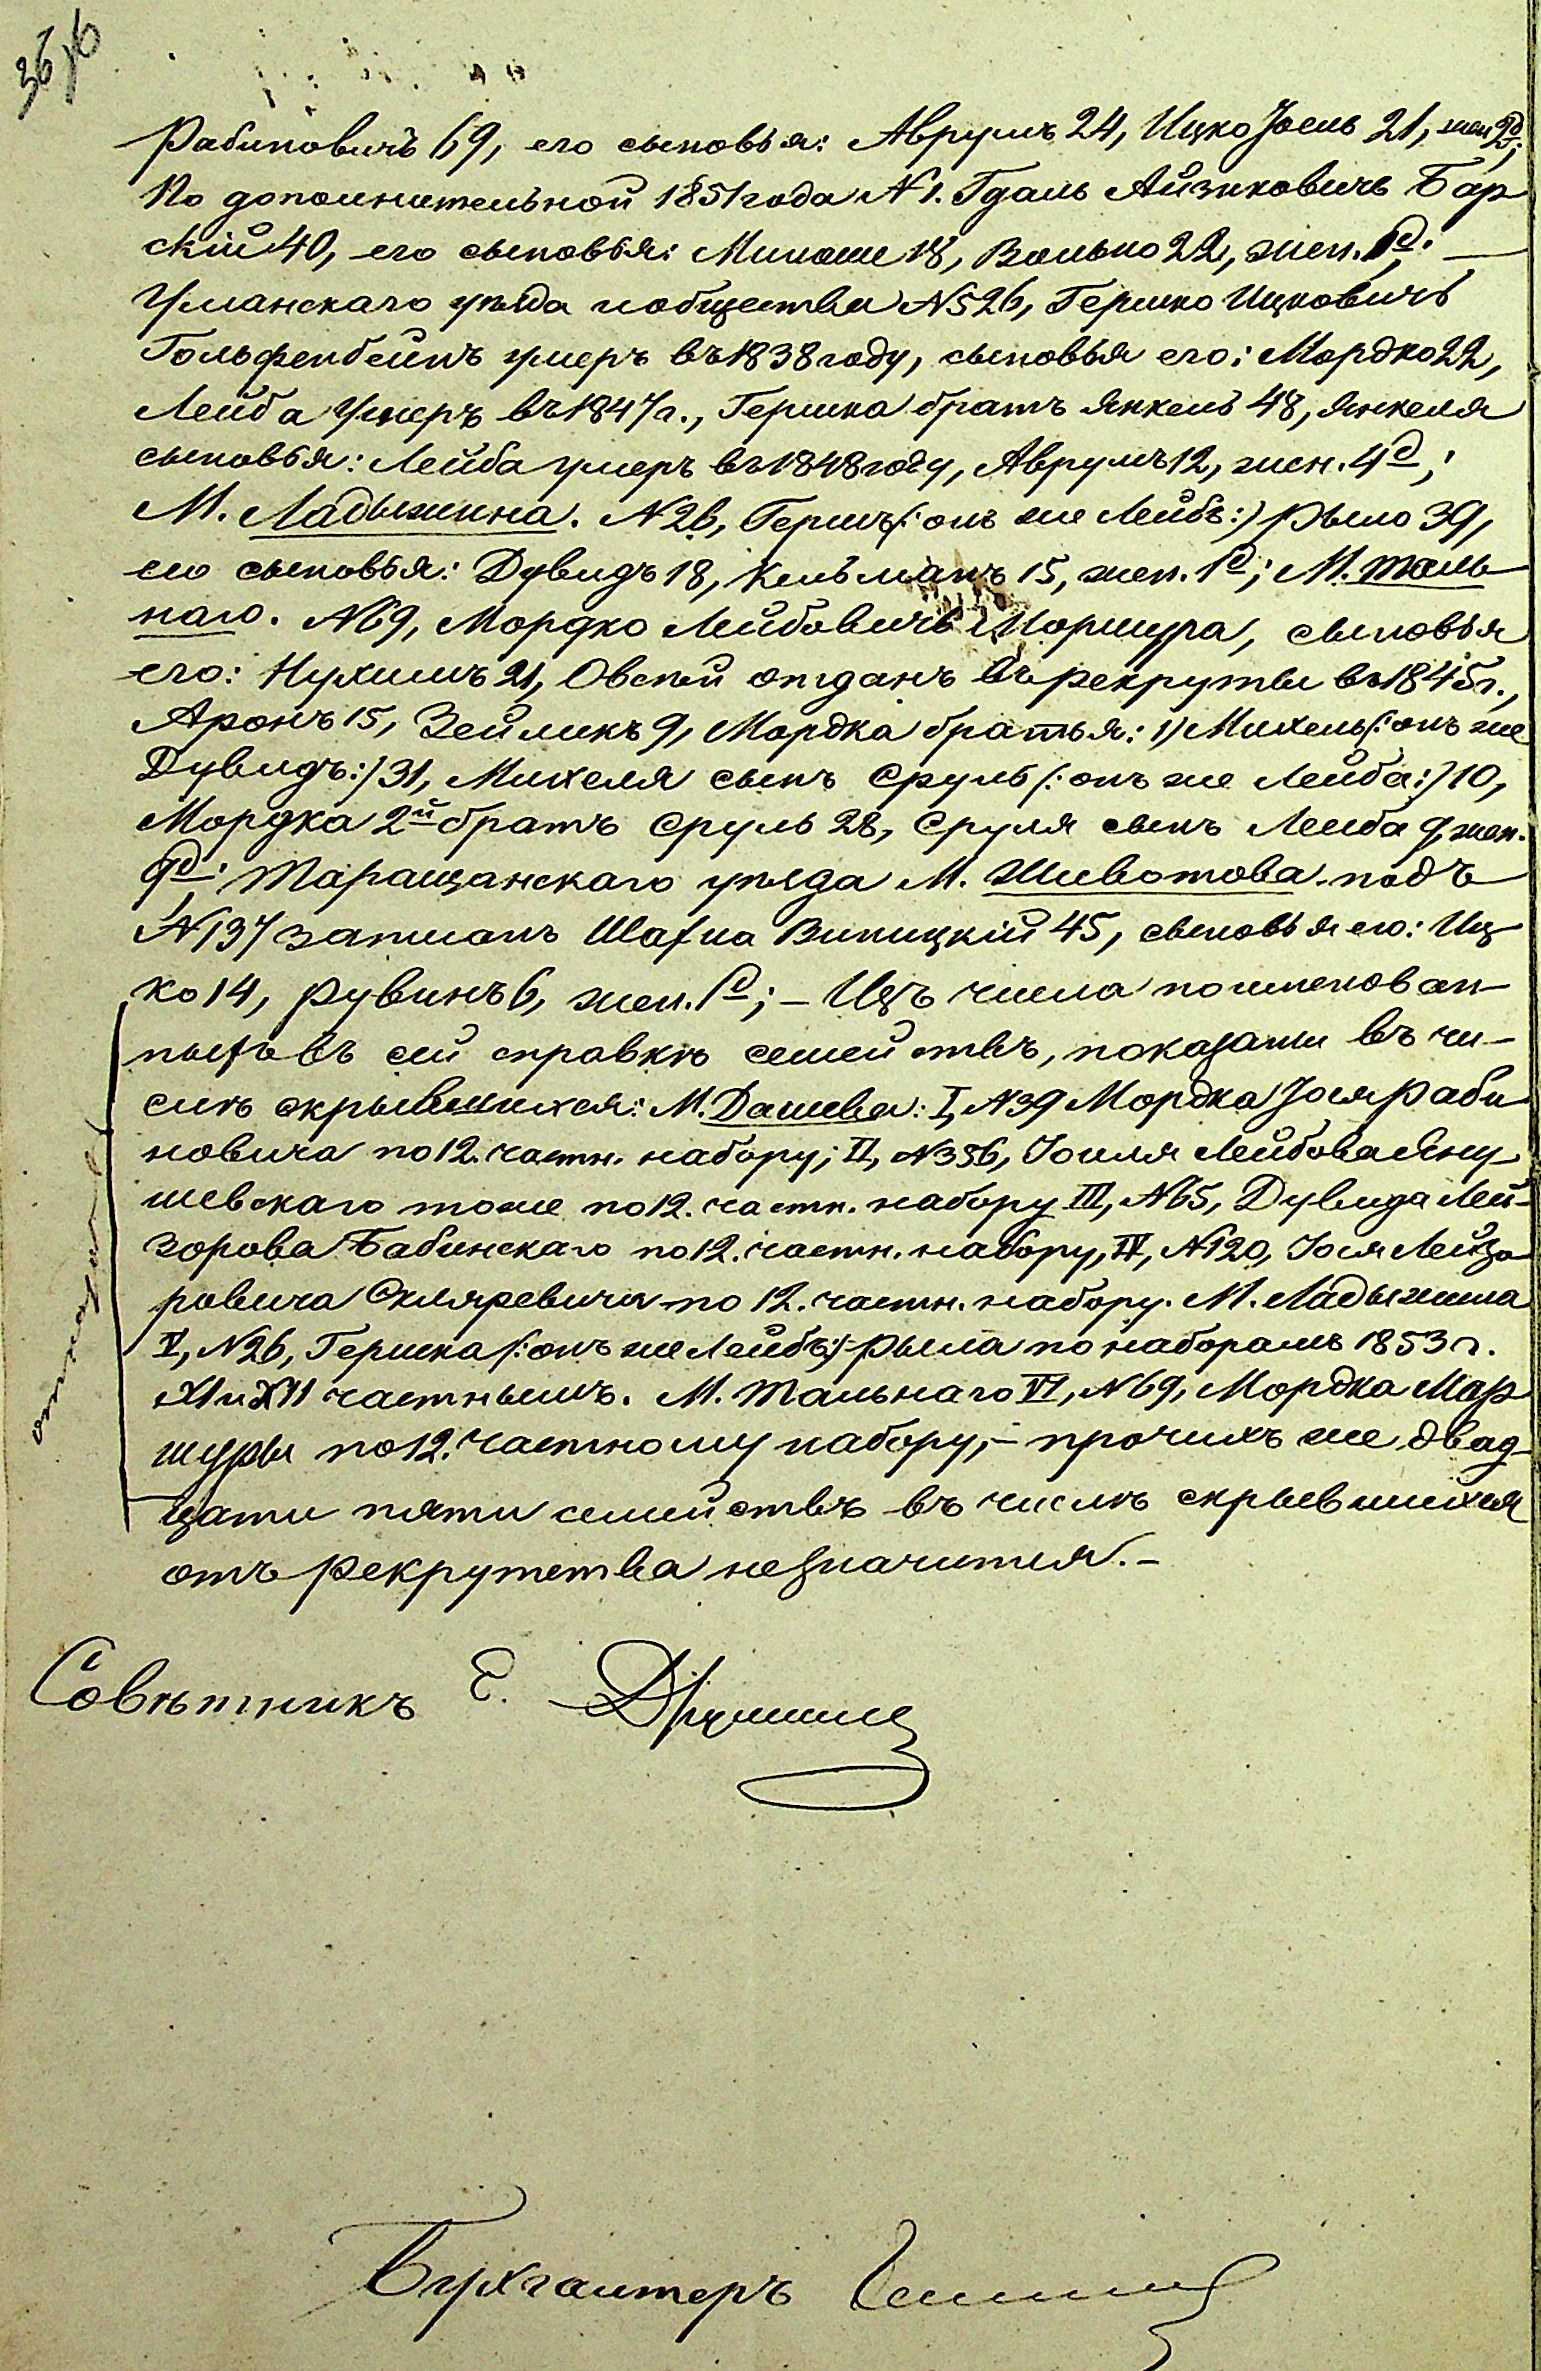 Рабиновичъ 69, его сыновья: Аврумъ 24, Ицко Іосель 21, жен. 2д;
По дополнительной 1851 года N 1. Гдаль Айзиковичъ Бар
скій 40, его сыновья: Милоше 18, Волько 22, жен. 1д. —
Уманскаго уѣзда и общества N 526, Гершко Ицковичъ
Гольфенбейнъ умеръ въ 1838 году, сыновья его: Мордко 22,
Лейба умеръ въ 1847 г., Гершка братъ Янкель 48, Янкеля
сыновья: Лейба умеръ въ 1848 году, Аврумъ 12, жен. 4д;
М. Ладыжина. N 26, Гершъ /: онъ же Лейбъ :/ Рыло 39,
его сыновья: Дувидъ 18, Кельманъ 15, жен. 1д; М. Таль
наго. N 69, Мордко Лейбовичъ Моршура, сыновья
его: Нухимъ 21, Овсѣй отданъ въ рекруты въ 1845 г.,
Аронъ 15, Зейликъ 9, Мордка братья: 1) Михель /: онъ же
Дувидъ :/ 31, Михеля сынъ Сруль /: онъ же Лейба :/ 10,
Мордка 2й братъ Сруль 28, Сруля сынъ Лейба 9, жен.
9д; Таращанскаго уѣзда М. Животова подъ
N 137 записанъ Шахна Виницкій 45, сыновья его: Иц
ко 14, Рувинъ 6, жен. 1д; — Изъ числа поименован-
ныхъ въ сей справкѣ семействъ, показаны въ чи-
слѣ скрывшихся: М. Дашева: I, N 39 Мордка Іося Раби
новича по 12. частн. набору; II, N 356, Іоиля Лейбова Яну
шевскаго тоже по 12. частн. набору III, N 65, Дувида Лей-
зорова Бабинскаго по 12. частн. набору, IV, N 120, Іося Лейзо
ровича Скляревича по 12. частн. набору. М. Ладыжина
V, N 26, Гершка /: онъ же Лейбъ :/ Рыла по наборамъ 1853 г.
XI и XII частнымъ. М. Тальнаго VI, N 69, Мордка Мар
шуры по 12. частному набору, — прочихъ же двад-
цати пяти семействъ въ числѣ скрывшихся
отъ рекрутства незначится. —
Совѣтникъ
Бухгалтеръ